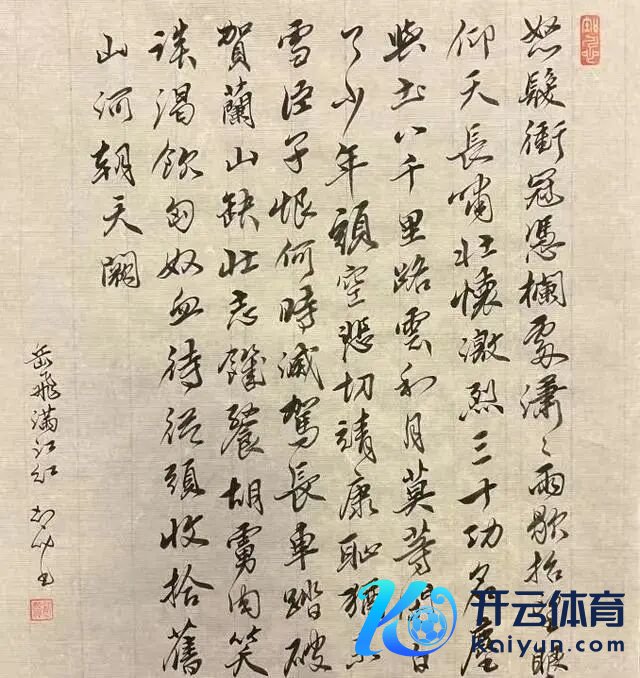 怒髮衝冠憑欄處瀟々雨歇抬望眼
仰天長嘯壯懷激烈三十功名塵
與土八千里路雲和月莫等閒白
了少年頭空悲切靖康恥猶未
雪臣子恨何時滅駕長車踏破
賀蘭山缺壯志饑餐胡虜肉笑
談渴飲匈奴血待從頭收拾舊
山河朝天闕
岳飛滿江红
开云体育
Kaiyun.com